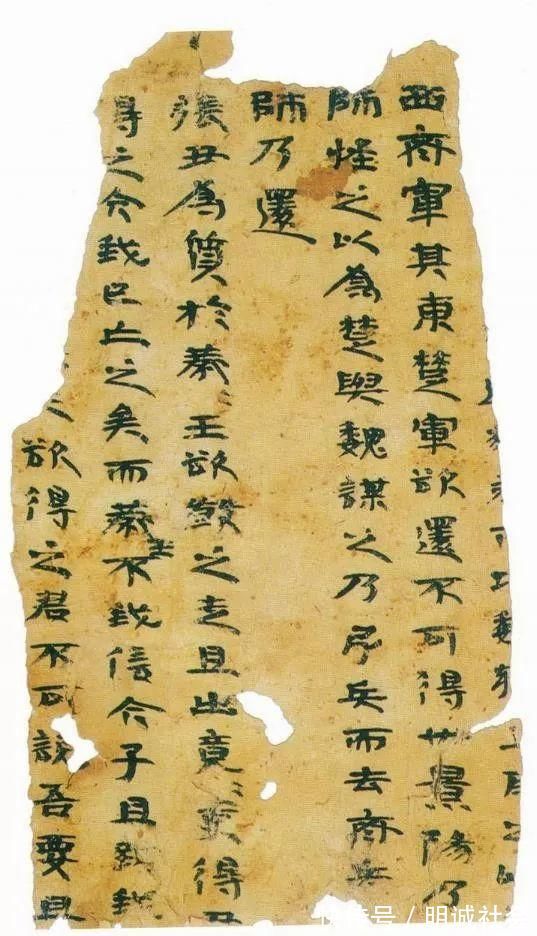 西齊軍其東楚軍欲還不可得也景陽乃
師怪之以為楚與魏謀之乃引兵而去齊兵
師乃還
張丑為質於燕〻王欲殺之走且出竟〻吏得丑
得之今我已亡之矣而燕王不我信今子且致我
欲得之君不可說吾要且
号/明诚社会